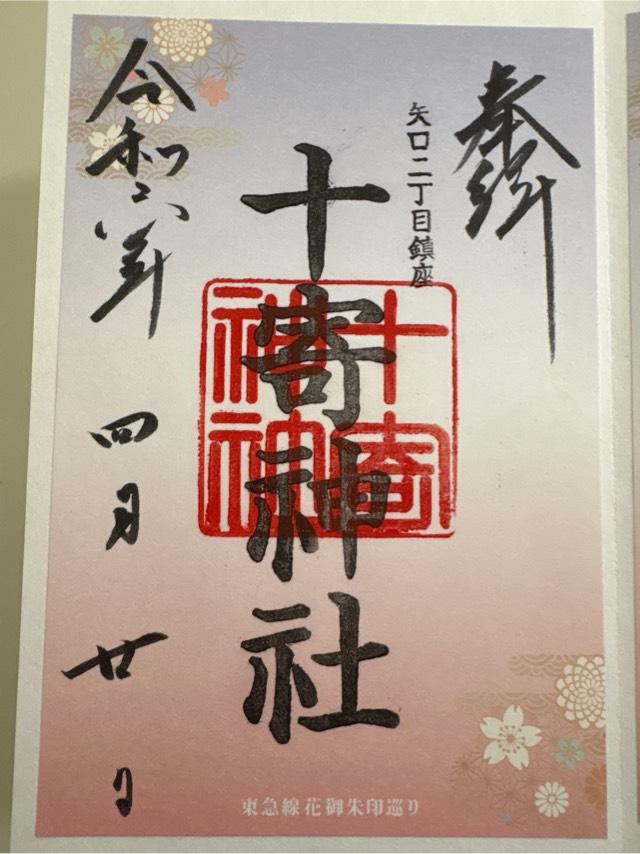 奉拝
矢口二丁目鎮座
十寄神社
十寄神社
令和六年
四月廿日
東急線花御朱印巡り